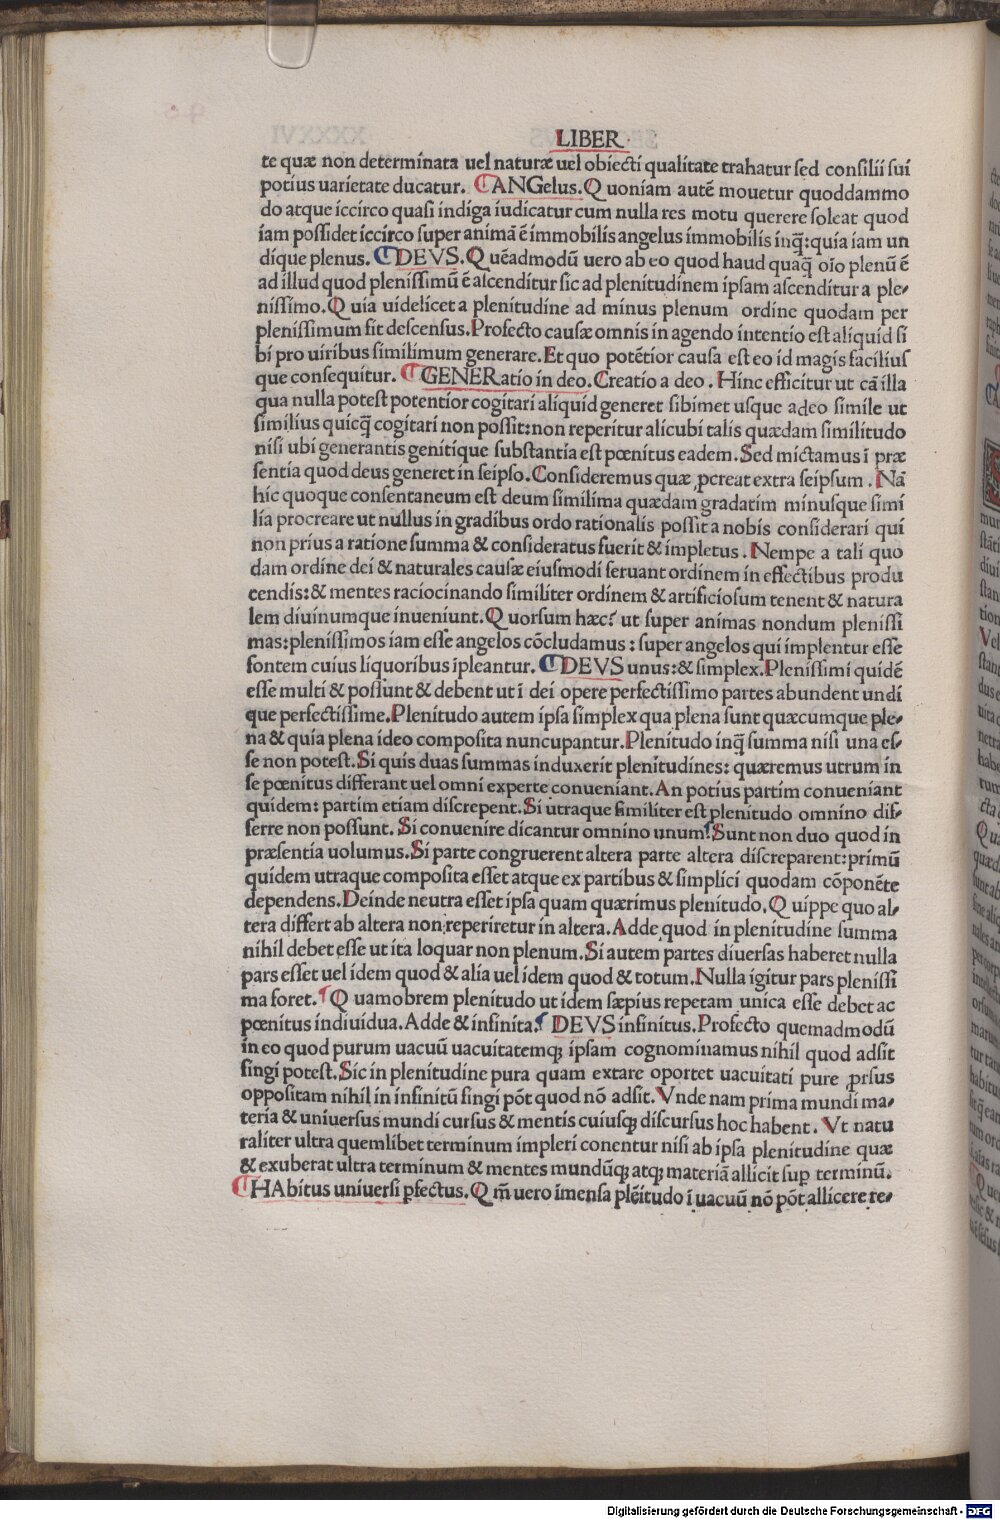 LIBER
te quæ non determinata uel naturæ uel obiecti qualitate trahatur sed consilii sui
potius uarietate ducatur. ¶ANGelus. Quoniam autē mouetur quoddammo
do atque iccirco quasi indiga iudicatur cum nulla res motu querere soleat quod
iam possidet iccirco super animā ē immobilis angelus immobilis inq̄: quia iam un
dique plenus. ¶DEVS. Quēadmodū uero ab eo quod haud quaq̄ oīo plenū ē
ad illud quod plenissimū ē ascenditur sic ad plenitudinem ipsam ascenditur a ple-
nissimo. Quia uidelicet a plenitudine ad minus plenum ordine quodam per
plenissimum fit descensus. Profecto causæ omnis in agendo intentio est aliquid si
bi pro uiribus simílimum generare. Et quo potētior causa est eo id magis facilius
que consequitur. ¶GENERatio in deo. Creatio a deo. Hinc efficitur ut cā illa
qua nulla potest potentior cogitari aliquid generet sibimet usque adeo simile ut
similius quicq̄ cogitari non possit: non reperitur alicubi talis quædam similitudo
nisi ubi generantis genitique substantia est pœnitus eadem. Sed mictamus ī præ
sentia quod deus generet in seipso. Consideremus quæ ꝓcreat extra seipsum. Nā
hic quoque consentaneum est deum simílima quædam gradatim minusque simi
lia procreare ut nullus in gradibus ordo rationalis possit a nobis considerari qui
non prius a ratione summa & consideratus fuerit & impletus. Nempe a tali quo
dam ordine dei & naturales causæ eiusmodi seruant ordinem in effectibus produ
cendis: & mentes raciocinando similiter ordinem & artificiosum tenent & natura
lem diuinumque inueniunt. Quorsum hæc? ut super animas nondum plenissi
mas: plenissimos iam esse angelos cōcludamus: super angelos qui implentur esse
fontem cuius liquoribus īpleantur. ¶DEVS unus: & simplex. Plenissimi quidē
esse multi & possunt & debent ut ī dei opere perfectissimo partes abundent undi
que perfectissime. Plenitudo autem ipsa simplex qua plena sunt quæcumque ple-
na & quia plena ideo composita nuncupantur. Plenitudo inq̄ summa nisi una es-
se non potest. Si quis duas summas induxerit plenitudines: quæremus utrum in
se pœnitus differant uel omni experte conueniant. An potius partim conueniant
quidem: partim etiam discrepent. Si utraque similiter est plenitudo omnino dif-
ferre non possunt. Si conuenire dicantur omnino unum? Sunt non duo quod in
præsentia uolumus. Si parte congruerent altera parte altera discreparent: primū
quidem utraque composita esset atque ex partibus & simplici quodam cōponēte
dependens. Deinde neutra esset ipsa quam quærimus plenitudo. Quippe quo al-
tera differt ab altera non reperiretur in altera. Adde quod in plenitudine summa
nihil debet esse ut ita loquar non plenum. Si autem partes diuersas haberet nulla
pars esset uel idem quod & alia uel idem quod & totum. Nulla igitur pars plenissi
ma foret. ¶Quamobrem plenitudo ut idem sæpius repetam unica esse debet ac
pœnitus indiuidua. Adde & infinita. ¶DEVS infinitus. Profecto quemadmodū
in eo quod purum uacuū uacuitatemqꝫ ipsam cognominamus nihil quod adsit
fingi potest. Sic in plenitudine pura quam extare oportet uacuitati pure ꝓrsus
oppositam nihil in infinitū fingi pōt quod nō adsit. Vnde nam prima mundi ma-
teria & uniuersus mundi cursus & mentis cuiusqꝫ discursus hoc habent. Vt natu
raliter ultra quemlibet terminum impleri conentur nisi ab ipsa plenitudine quæ
& exuberat ultra terminum & mentes mundūqꝫ atqꝫ materiā allicit suꝑ terminū.
¶HAbitus uniuersi ꝑfectus. Qm̄ uero īmensa plēitudo ī uacuū nō pōt allicere re-
Digitalisierung gefördert durch die Deutsche Forschungsgemeinschaft - DFG